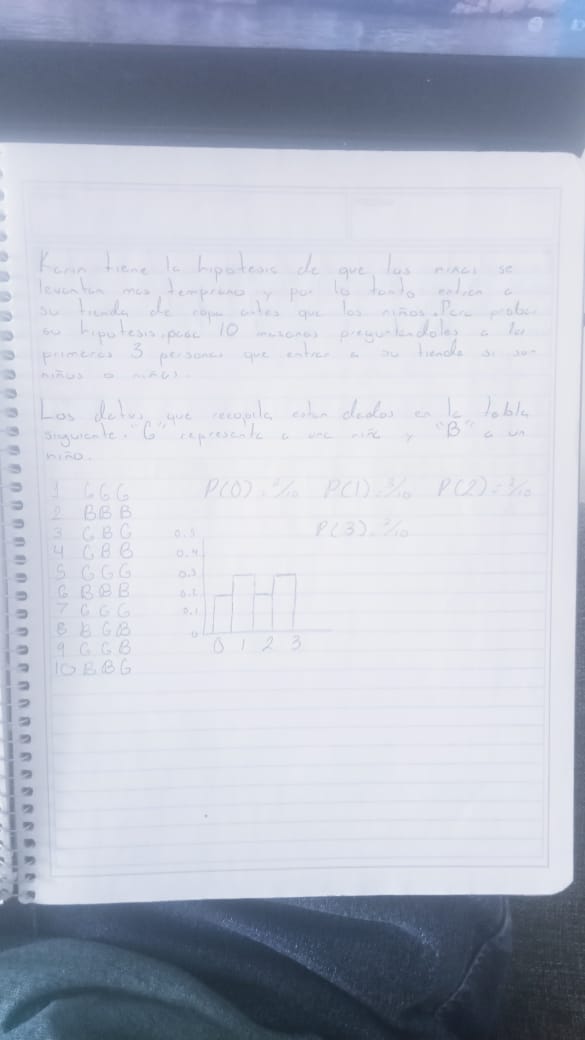 Karin tiene la hipotesis de que las niñas se
levantan mas temprano y por lo tanto entran a
su tienda de ropa antes que los niños. Para probar
su hipotesis, pasa 10 mañanas preguntandoles a las
primeras 3 personas que entran a su tienda si son
niños o niñas.
Los datos que recopila estan dados en la tabla
siguiente. "G" representa a una niña y "B" a un
niño.
1 G G G
2 B B B
3 G B G
4 G B B
5 G G G
6 B B B
7 G G G
8 B G B
9 G G B
10 B B G
P(0) = /10 P(1) = 3/10 P(2) = /10
P(3) = /10
0.5
0.4
0.3
0.2
0.1
0
0 1 2 3